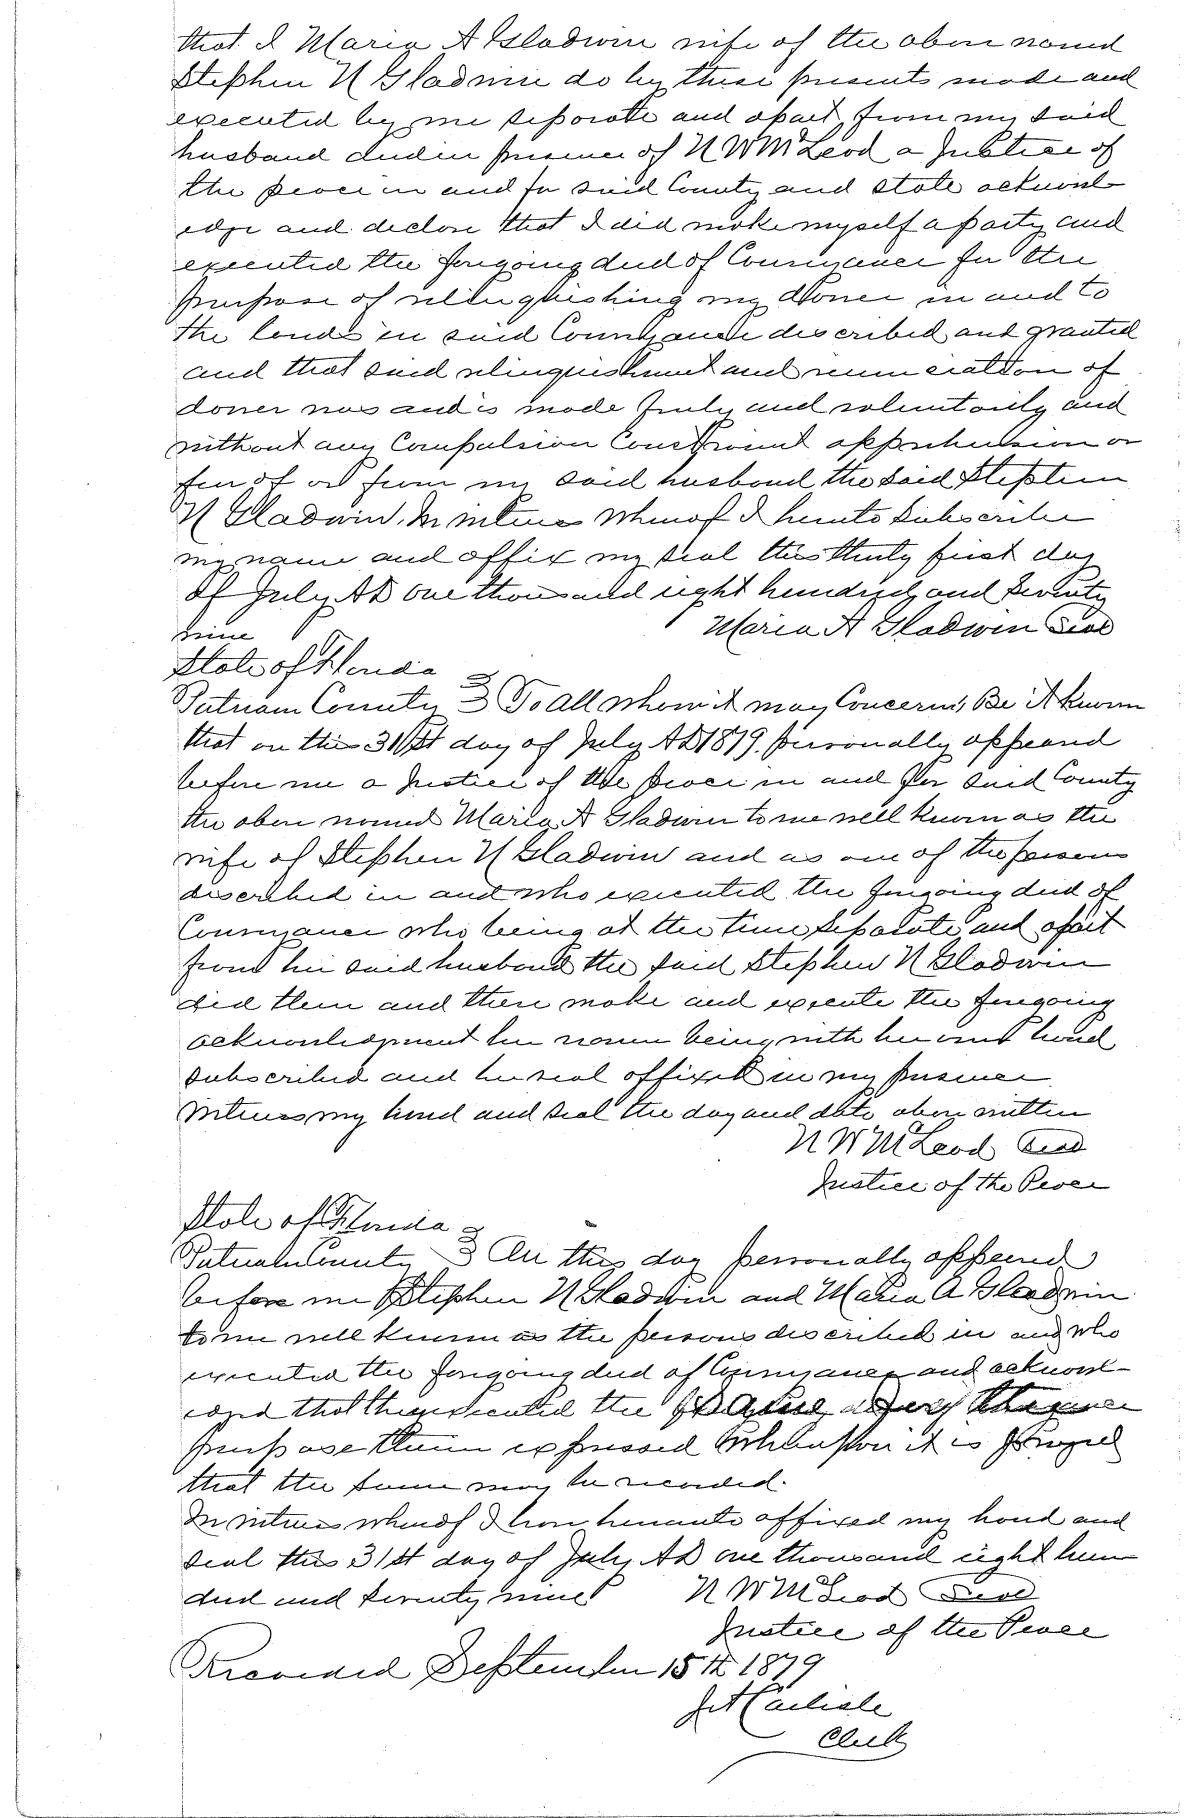 that I Maria A Gladwin wife of the above named
Stephen N Gladwin do by these presents made and
executed by me separate and apart from my said
husband and in presence of N W McLeod a Justice of
the peace in and for said County and state acknowl-
edge and declare that I did make myself a party and
executed the foregoing deed of Conveyance for the
purpose of relinquishing my dower in and to
the lands in said Conveyance described and granted
and that said relinquishment and renunciation of
dower was and is made freely and voluntarily and
without any Compulsion Constraint apprehension or
fear of or from my said husband the said Stephen
N Gladwin. In witness whereof I hereto Subscribe
my name and affix my seal this thirty first day
of July AD one thousand eight hundred and seventy
nine Maria A Gladwin Seal
State of Florida
Putnam County To All whom it may Concern, Be it known
that on this 31st day of July AD 1879. personally appeared
before me a Justice of the peace in and for said County
the above named Maria A Gladwin to me well known as the
wife of Stephen N Gladwin and as one of the persons
described in and who executed the foregoing deed of
Conveyance who being at the time separate and apart
from her said husband the said Stephen N Gladwin
did then and there make and execute the foregoing
acknowledgment her name being with her own hand
subscribed and her seal affixed in my presence
Witness my hand and seal the day and date above written
N W McLeod Seal
Justice of the Peace
State of Florida
Putnam County On this day personally appeared
before me Stephen N Gladwin and Maria A Gladwin
to me well known as the persons described in and who
executed the foregoing deed of Conveyance and acknowl-
edged that they executed the same
purpose therein expressed Whereupon it is prayed
that the same may be recorded.
In witness whereof I have hereunto affixed my hand and
seal this 31st day of July AD one thousand eight hun
dred and seventy nine N W McLeod Seal
Justice of the Peace
Recorded September 15th 1879
Carlisle
Clerk